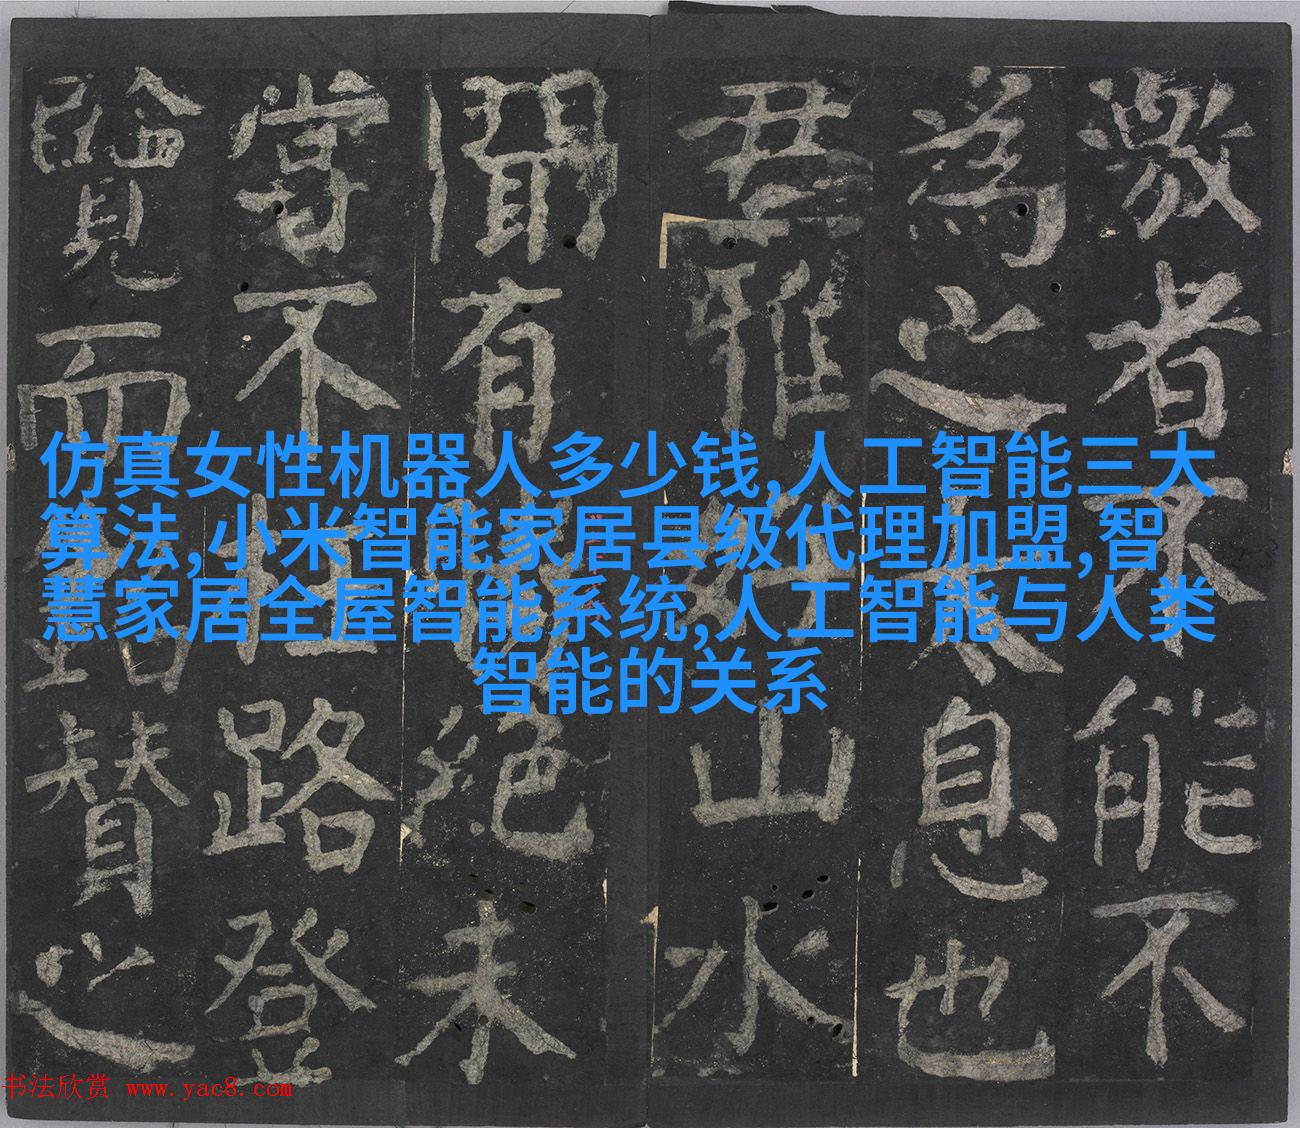 激者不能不
為之太息也
君雅好山水
聞有絕未
嘗不枉路登
覽而贊之
仿真女性机器人多少钱,人工智能三大
算法,小米智能家居县级代理加盟,智
慧家居全屋智能系统,人工智能与人类
智能的关系
书法欣赏 www.yac8.com